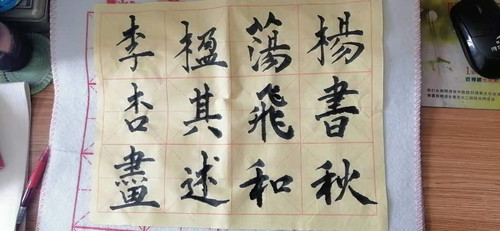 楊書秋
蕩飛和
楹其述
李杏畫